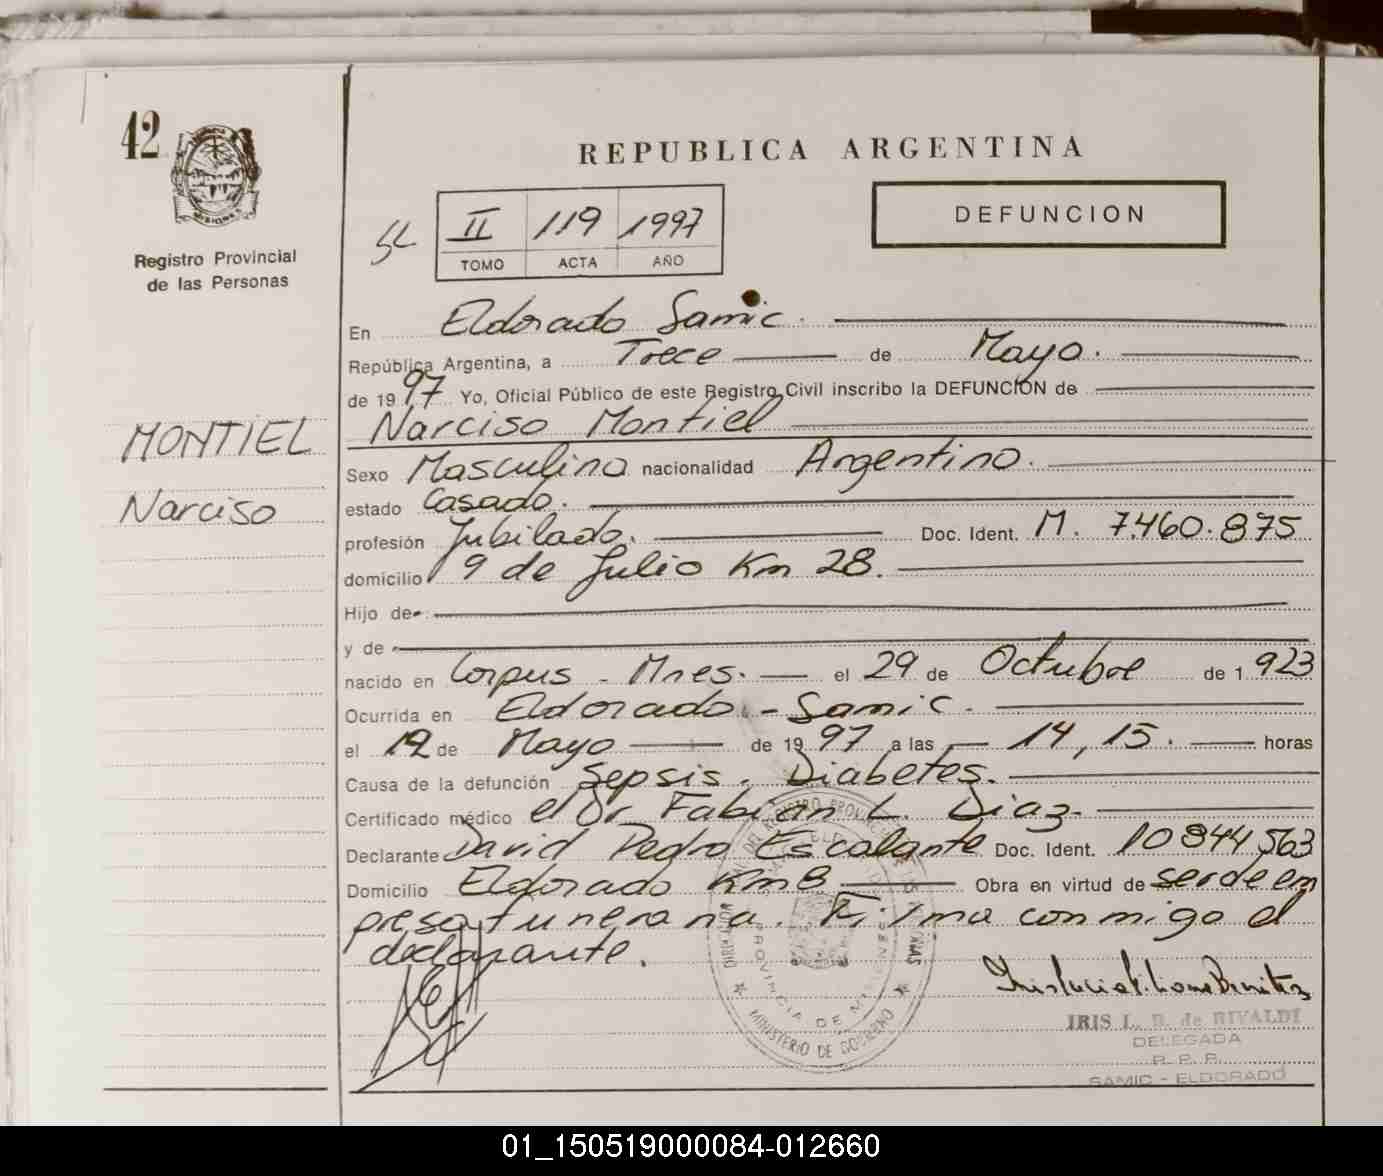 42
REPUBLICA ARGENTINA
MISIONES
Registro Provincial
de las Personas
II 119 1997
TOMO ACTA AÑO
DEFUNCION
En Eldorado Samic.
República Argentina, a Trece de Mayo.
de 1997 Yo, Oficial Público de este Registro Civil inscribo la DEFUNCIÓN de
MONTIEL
Narciso
Narciso Montiel
Sexo Masculino nacionalidad Argentino.
estado Casado.
profesión Jubilado. Doc. Ident. M. 7.460.875
domicilio 9 de Julio Km 28.
Hijo de
y de
nacido en Corpus - Mnes. el 29 de Octubre de 1923
Ocurrida en Eldorado - Samic.
el 12 de Mayo de 1997 a las 14,15. horas
Causa de la defunción Sepsis. Diabetes.
Certificado médico el Dr Fabian L. Diaz.
Declarante David Pedro Escalante Doc. Ident. 10844563
Domicilio Eldorado Km 8 Obra en virtud de ser de em
presa funeraria. Firma conmigo el
declarante.
PROVINCIA DE MISIONES
MINISTERIO DE GOBIERNO
IRIS L. B. de RIVALDI
DELEGADA
R. P. P.
SAMIC - ELDORADO
01_150519000084-012660